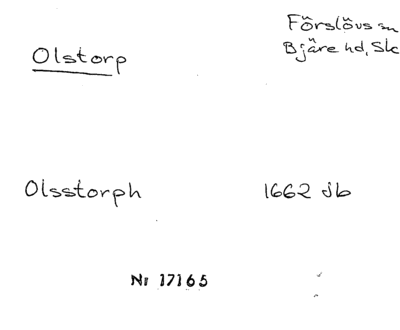 Olstorp
Förslövs sn
Bjäre hd, Sk
Olsstorph 1662 Jb
Nr 17165